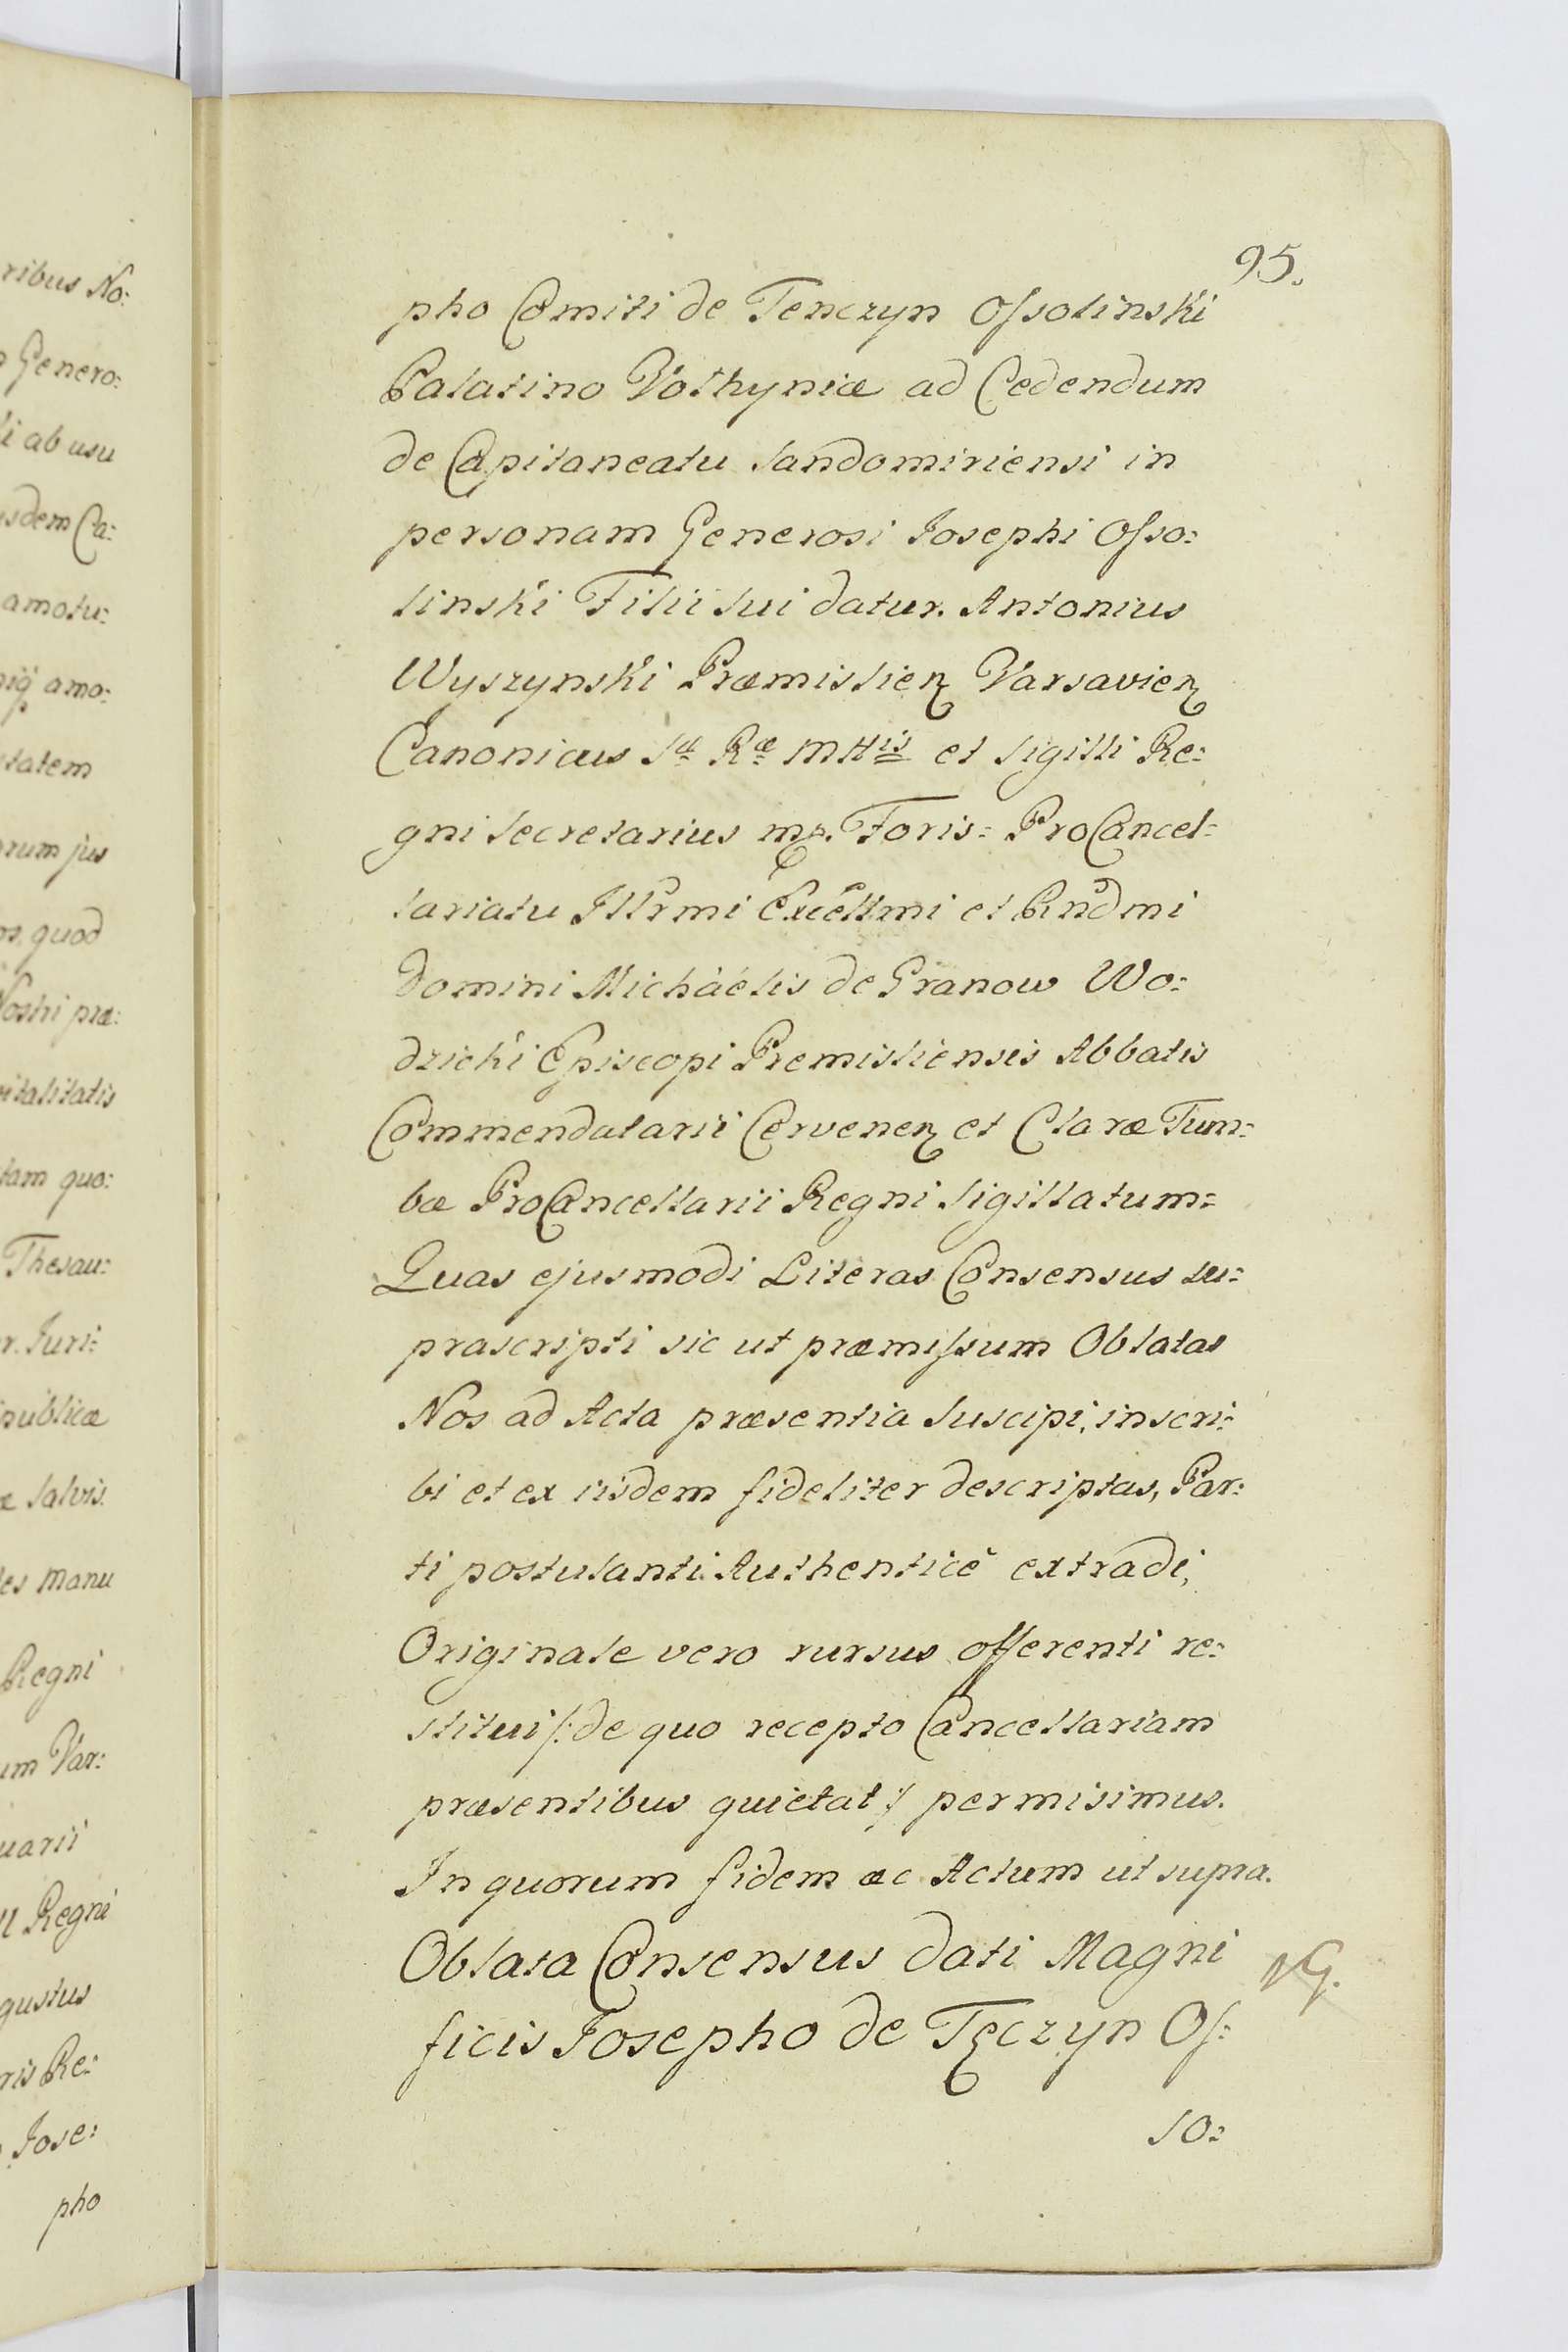 ribus No:
Genero:
i ab usu
usdem Ca:
amotu:
niq amo:
statem
orum jus
quod
Nostri præ:
vitalitatis
tam quo:
Thesau:
r. Juri:
publicæ
æ salvis.
les manu
Regni
um Var:
uarii
ll Regni
gustus
ris Re:
Jose:
pho
95.
pho Comiti de Tenczyn Ossolinski
Palatino Volhyniæ ad Cedendum
de Capitaneatu Sandomiriensi in
personam Generosi Josephi Osso:
linski Filii sui datur. Antonius
Wyszynski Præmislien Varsavien
Canonicus Sæ Ræ Mttis et Sigilli Re:
gni Secretarius mp. Foris: ProCancel:
lariatu Illrmi Excellmi et Rndmi
Domini Michàélis de Granow Wo:
dzicki Episcopi Premisliensis Abbatis
Commendatarii Cervenen et Claræ Tum:
bæ ProCancellarii Regni Sigillatum:
Quas ejusmodi Literas Consensus su:
prascripti sic ut præmissum Oblatas
Nos ad Acta præsentia suscipi, inscri:
bi et ex iisdem fideliter descriptas, Par:
ti postulanti Authenticè extradi,
Originale vero rursus offerenti re:
stitui /: de quo recepto Cancellariam
præsentibus quietat :/ permisimus.
In quorum fidem ac Actum ut supra.
Oblata Consensus dati Magni
ficis Josepho de Tęczyn Os:
so: